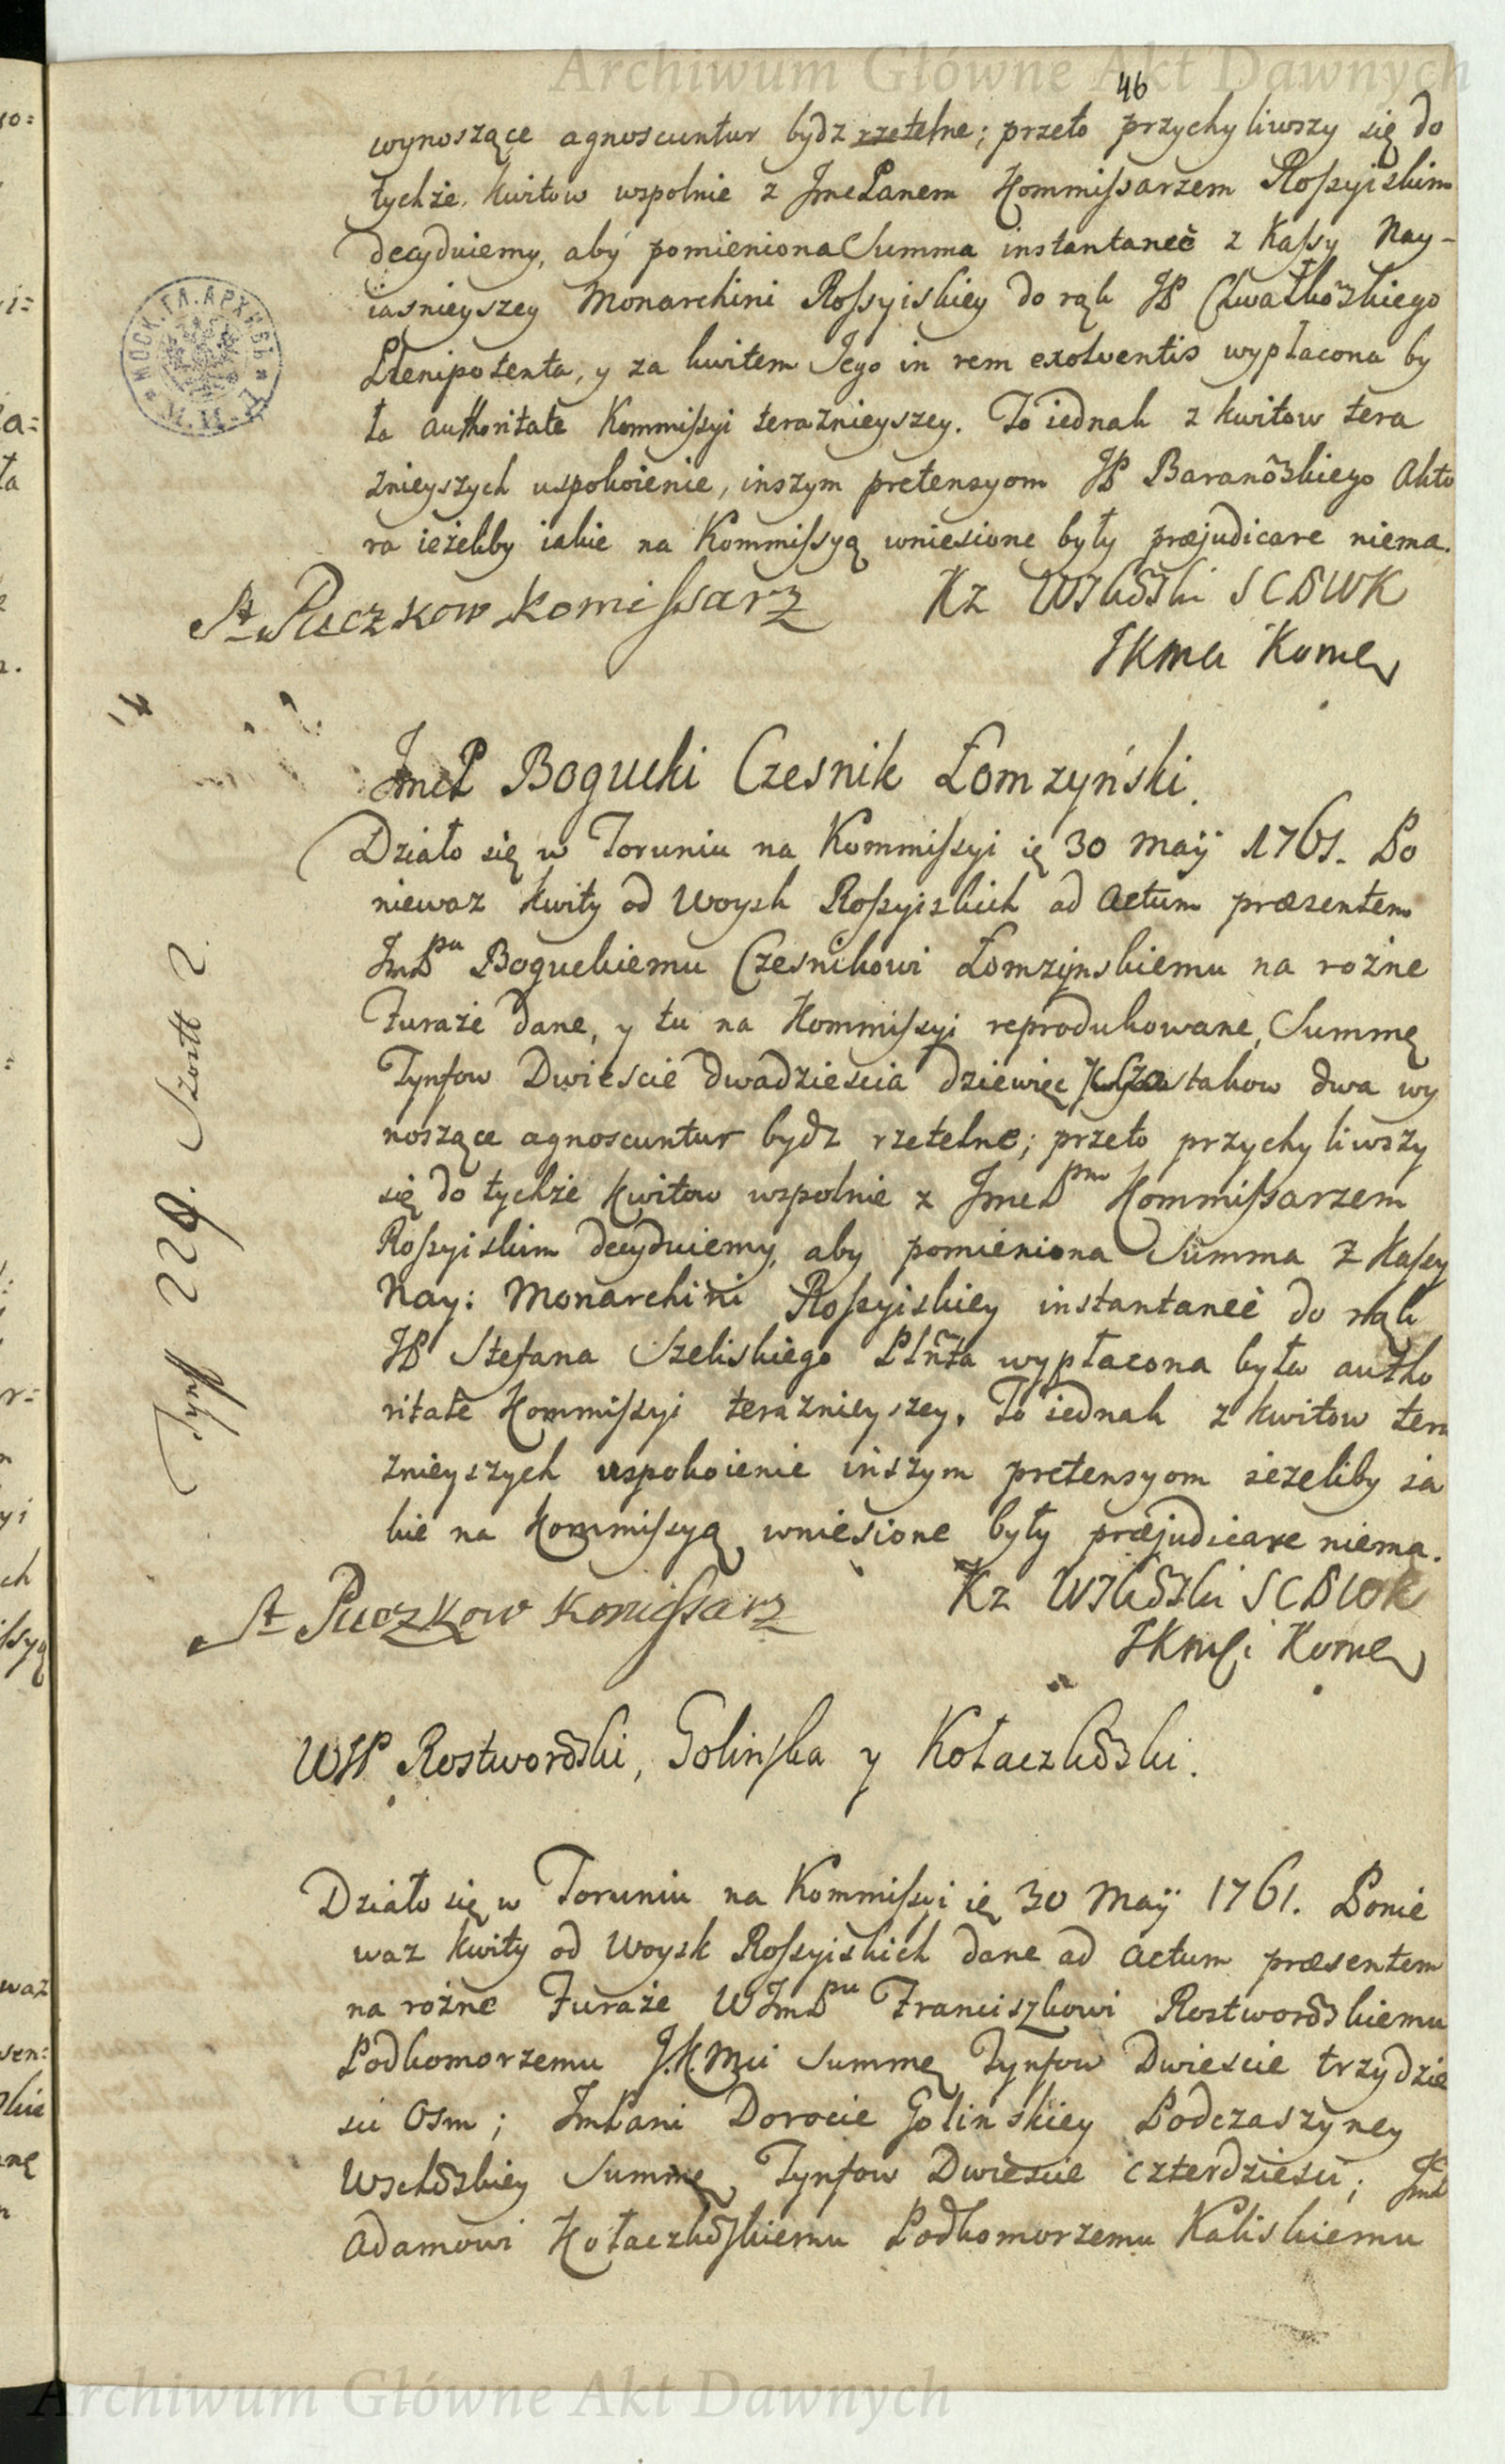 Archiwum Główne Akt Dawnych
46
wynoszące agnoscuntur bydz rzetelne; przeto przychyliwszy się do
tychże kwitow wspolnie z JmePanem Kommiſsarzem Roſsyiskim
decyduiemy, aby pomieniona Summa instantaneè z Kaſsy Nay-
iasnieyszey Monarchini Roſsyiskiey do rąk JP Chwałkoskiego
Plenipotenta, y za kwitem Jego in rem exolventis wypłacona by
ła authoritate Kommiſsyi teraznieyszey. To iednak z kwitow tera
znieyszych uspokoienie, inszym pretensyom JP Baranoskiego Akto
ra ieżeliby iakie na Kommiſsyą wniesione były præjudicare niema.
St Puczkow Komiſsarz
Kz SCBWK
JKMci Kome
14
JmcP Bogucki Czesnik Łomzyński.
Działo się w Toruniu na Kommiſsyi ię 30 Maÿ 1761. Po
niewaz kwity od Woysk Roſsyiskich ad Actum præsentem
JmP pu Boguckiemu Czesnikowi Łomzynskiemu na rożne
Furaże dane, y tu na Kommiſsyi reprodukowane, Summę
Tynfow Dwieście dwadzieścia dziewięc Szostakow dwa wy
noszące agnoscuntur bydz rzetelne; przeto przychyliwszy
się do tychże kwitow wspolnie z JmcP pm Kommiſsarzem
Roſsyiskim decyduiemy, aby pomieniona Summa z Kaſsy
Nay: Monarchini Roſsyiskiey instantaneè do rąk
JP Stefana Szeliskiego Plnta wypłacona była autho
ritate Kommiſsyi teraznieyszey. To iednak z kwitow tera
znieyszych uspokoienie inszym pretensyom ieżeliby ia
kie na Kommiſsyą wniesione były præjudicare niema.
Tynf 229. Szost 2.
St Puczkow Komiſsarz
Kz SCBWK
JKMci Kome
WJP Rostworoski, Golinska y Kołaczkoski.
Działo się w Toruniu na Kommiſsyi ię 30 Maÿ 1761. Ponie
waz kwity od Woysk Roſsyiskich dane ad Actum præsentem
na rożne Furaże WJmP pu Franciszkowi Rostworoskiemu
Podkomorzemu J.K.Mci Summę Tynfow Dwieście trzydzie
sci Osm; JmPani Dorocie Golinskiey Podczaszyney
Wschoskiey Summę Tynfow Dwieście czterdzieści; Jmc
Adamowi Kołaczkoskiemu Podkomorzemu Kaliskiemu
Archiwum Główne Akt Dawnych